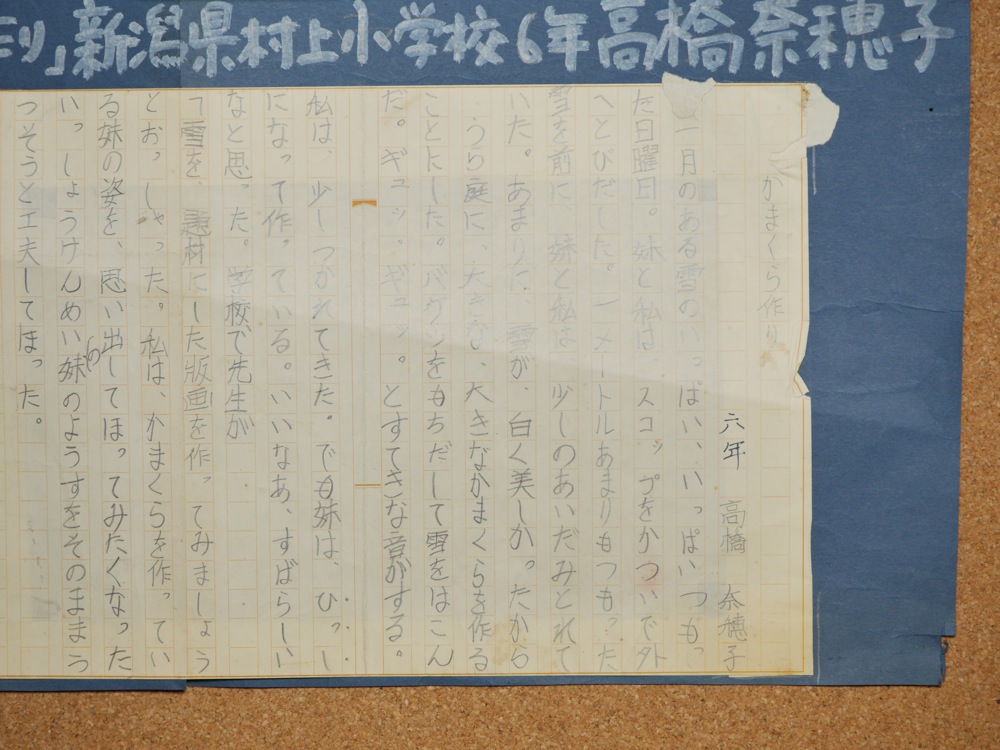 ミリ」新潟県村上小学校6年高橋奈穂子
かまくら作り
六年 高橋 奈穂子
一月のある雪のいっぱい、いっぱいつもっ
た日曜日。妹と私は、スコップをかついで外
へとびだした。一メートルあまりもつもった
雪を前に、妹と私は、少しのあいだみとれて
いた。あまりに、雪が、白く美しかったから
うら庭に、大きな、大きなかまくらを作る
ことにした。バケツをもちだして雪をはこん
だ。ギュッ、ギュッ。とすてきな音がする。
私は、少しつかれてきた。でも妹は、ひっし
になって作っている。いいなあ、すばらしい
なと思った。学校で先生が
「雪を、題材にした版画を作ってみましょう
とおっしゃった。私は、かまくらを作ってい
る妹の姿を、思い出してほってみたくなった
い。しょうけんめい妹のようすをそのままう
つそうと工夫してほった。
の